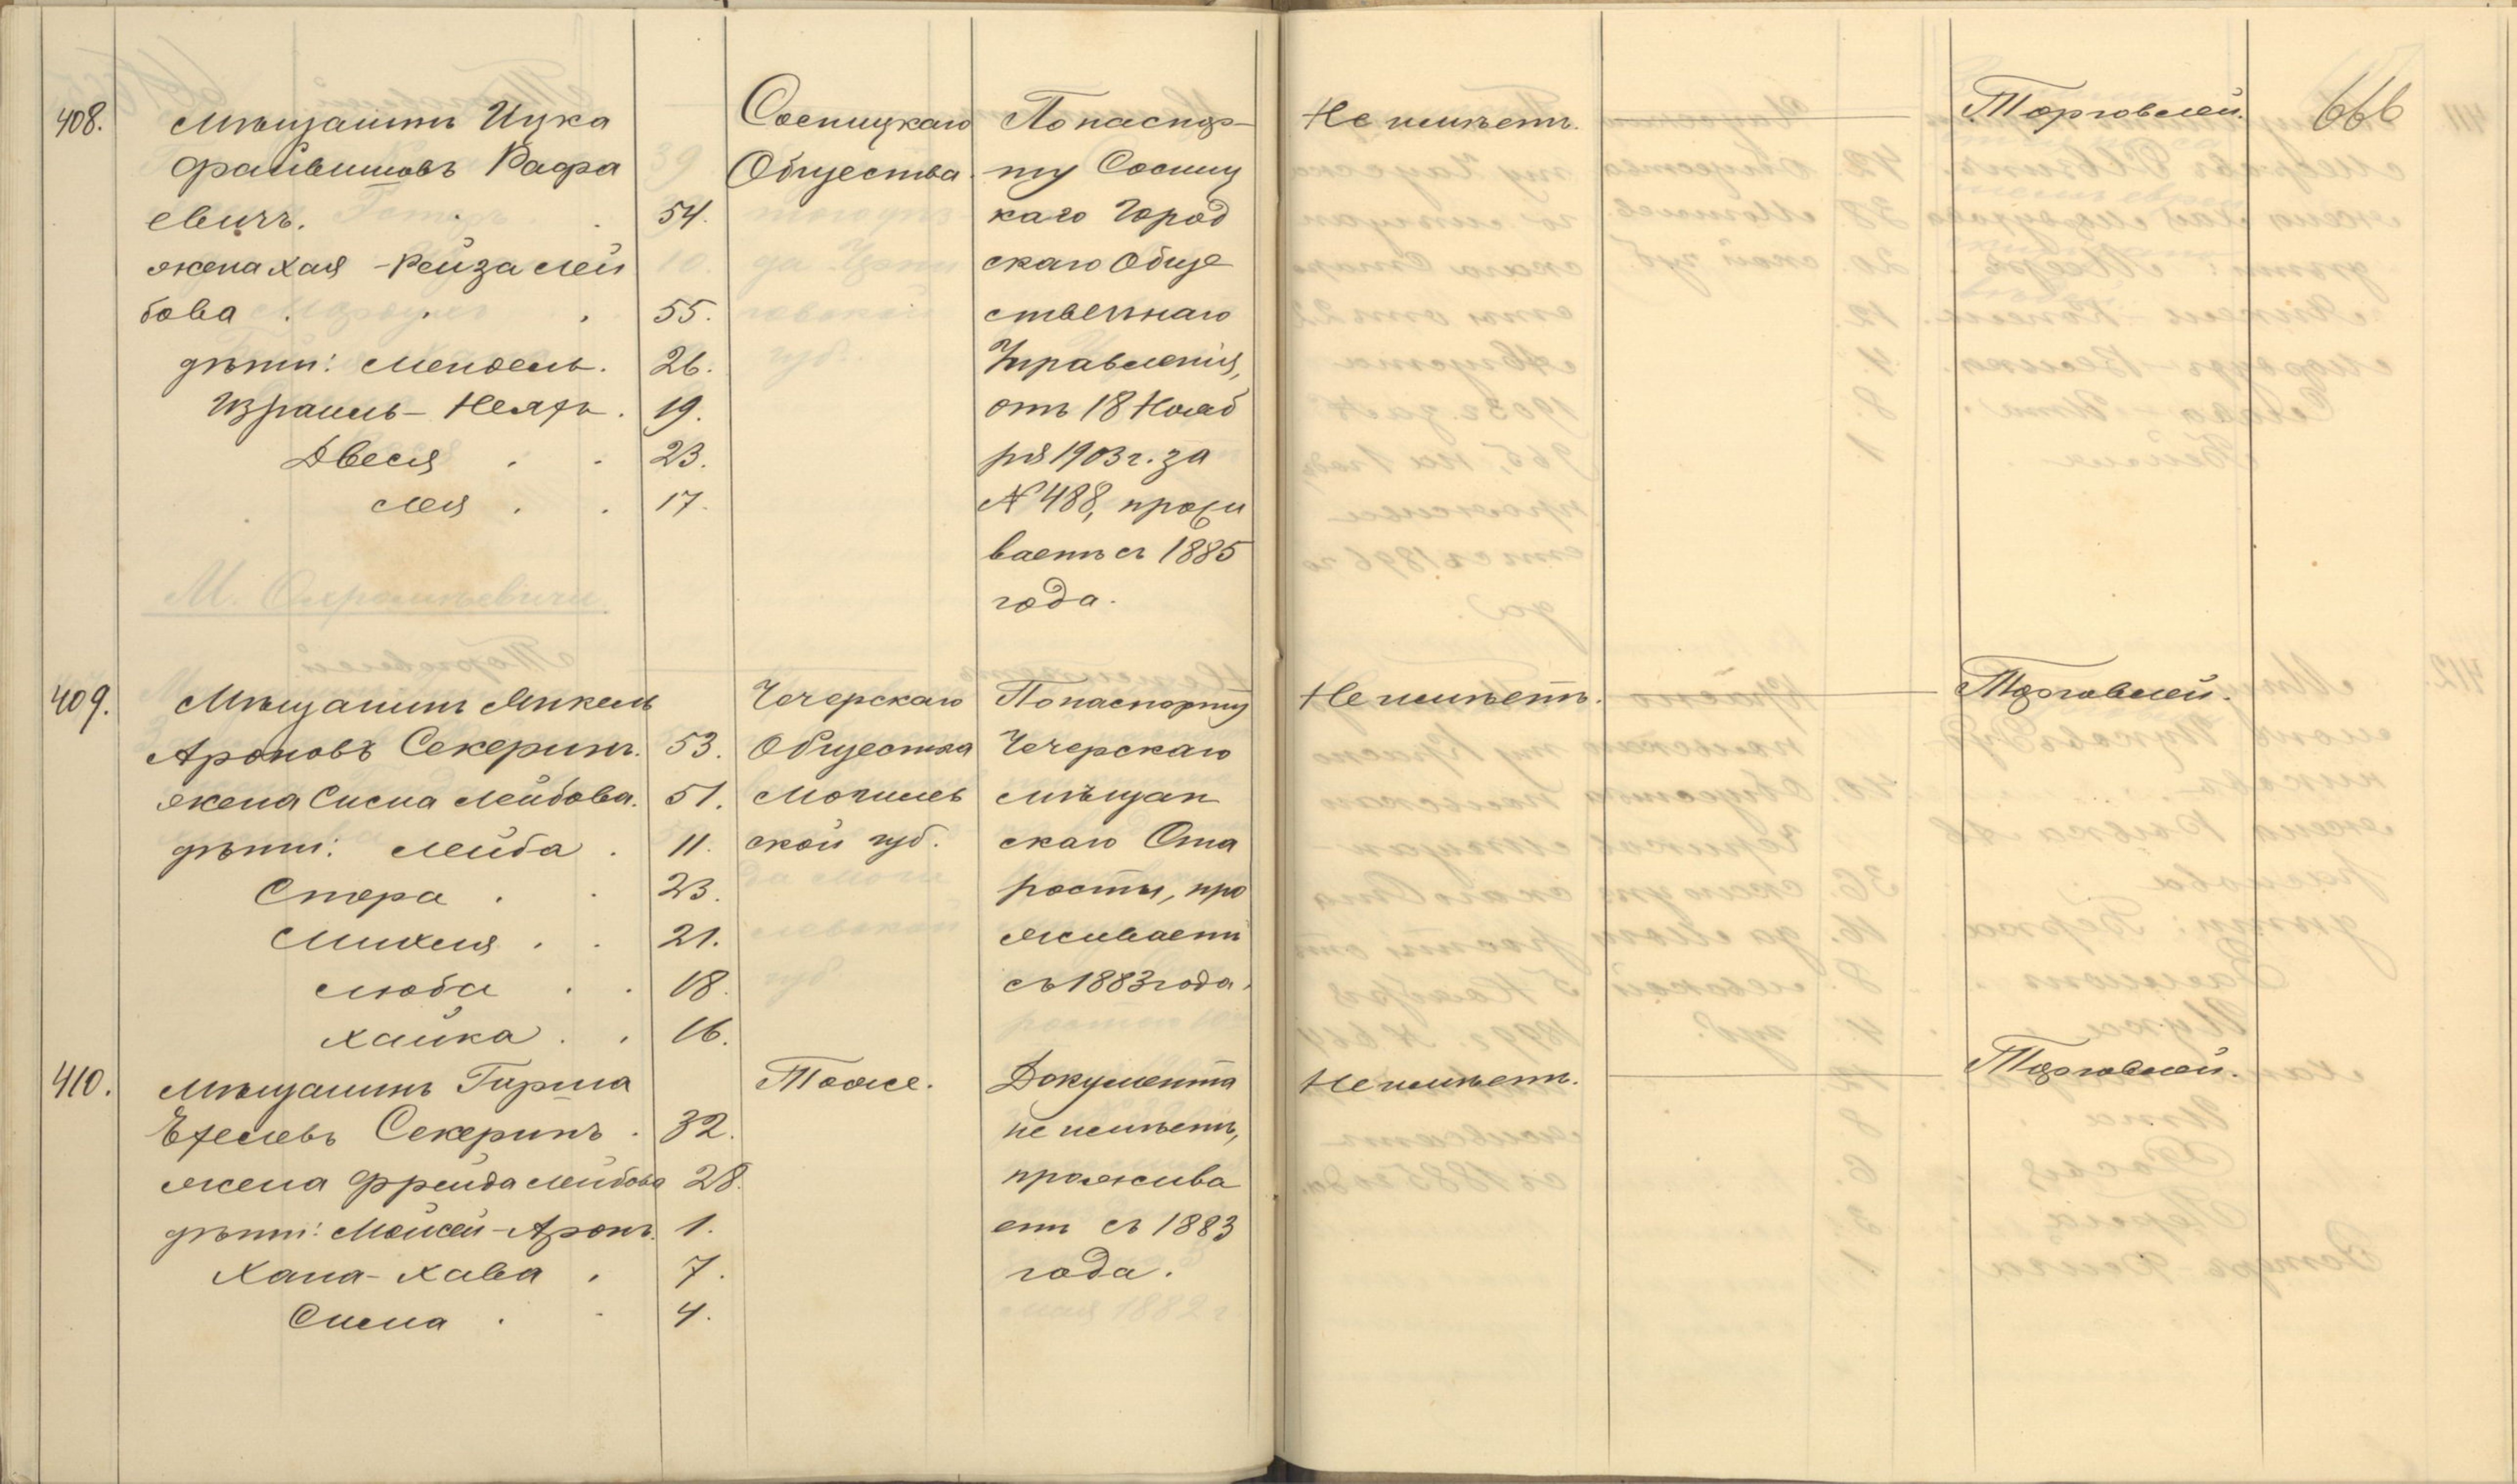 408.
Мѣщанинъ Ицка
Файвишовъ Рафа
евичъ. 54.
жена Хая-Рейза Лей
бова 55.
дѣти: Мендель. 26.
Израиль-Неахъ. 19.
Двеся 23.
Лея 17.
Сосницкаго
Общества.
По паспор-
ту Сосниц
каго Город
скаго Обще
ственнаго
Управленія,
отъ 18 Нояб
ря 1903 г. за
№ 488, прожи
ваетъ съ 1885
года.
Не имѣетъ.
Торговлей.
666
409.
Мѣщанинъ Янкель
Ароновъ Секеринъ. 53.
жена Сисна Лейбова. 51.
дѣти: Лейба. 11.
Стера 23.
Михля 21.
Люба 18.
Хайка 16.
Чечерскаго
Общества
Могилев
ской губ.
По паспорту
Чечерскаго
мѣщан
скаго Ста
росты, про
живаетъ
съ 1883 года.
Не имѣетъ.
Торговлей.
410.
Мѣщанинъ Гирша
Секеринъ. 32.
жена Фрейда Лейбова 28.
дѣти: Мойсей-Аронъ. 1.
Хана-Хава 7.
Сисна 4.
Тоже.
Документа
не имѣетъ,
прожива
етъ съ 1883
года.
Не имѣетъ.
Торговлей.